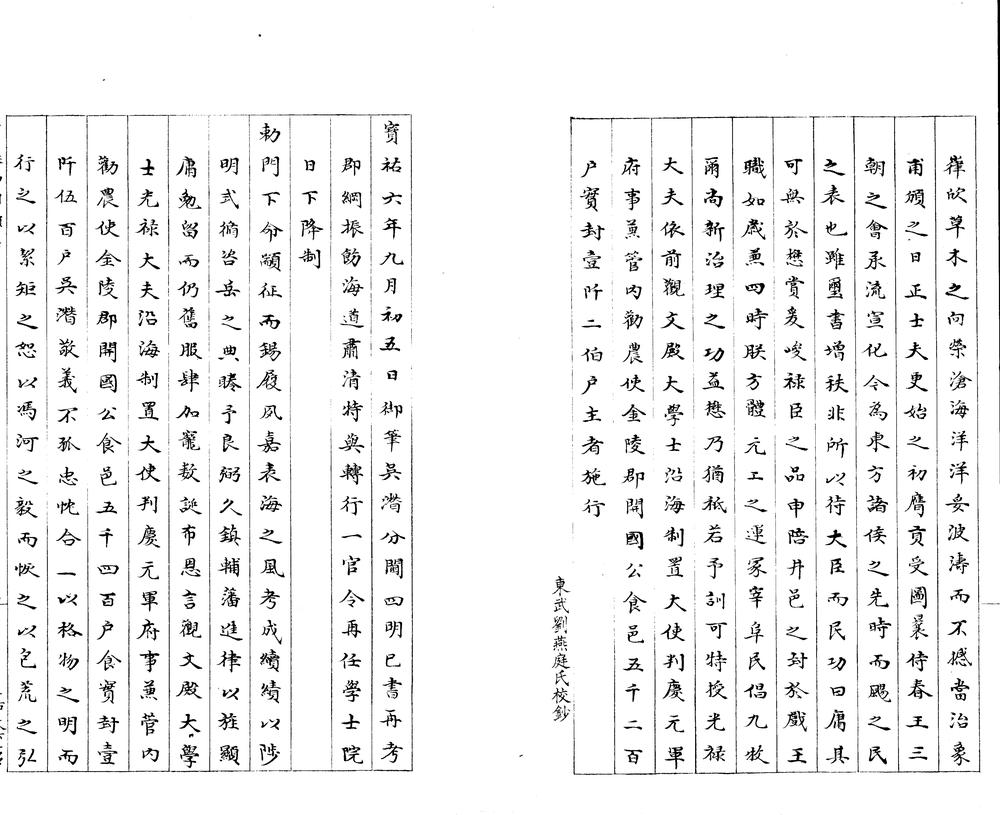 葎欣草木之向榮滄海洋洋妥波濤而不撼當治象
甫頒之日正士夫更始之初膺貢受圖曩侍春王三
朝之會承流宣化今為東方諸侯之先時而颺之民
之表也雖璽書增秩非所以待大臣而民功曰庸具
可無於懋賞爰峻祿臣之品申陪井邑之封於戲王
職如歲兼四時朕方體元工之運冢宰阜民倡九牧
爾尚新治理之功益懋乃猶祗若予訓可特授光祿
大夫依前觀文殿大學士沿海制置大使判慶元軍
府事兼管內勸農使金陵郡開國公食邑五千二百
户實封壹阡二伯户主者施行
東武劉燕庭氏校鈔
寶祐六年九月初五日御筆吳潛分閫四明已書再考
郡綱振飭海道肅清特與轉行一官令再任學士院
日下降制
勅門下命顓征而錫履夙嘉表海之風考成績績以陟
明式揚咨岳之典睠予良弼久鎮輔藩進律以旌顯
庸勉留而仍舊服肆加寵数誕布恩言觀文殿大學
士光祿大夫沿海制置大使判慶元軍府事兼管內
勸農使金陵郡開國公食邑五千四百户食實封壹
阡伍百户吳潛敬義不孤忠忱合一以格物之明而
行之以絜矩之恕以馮河之毅而恢之以包荒之弘